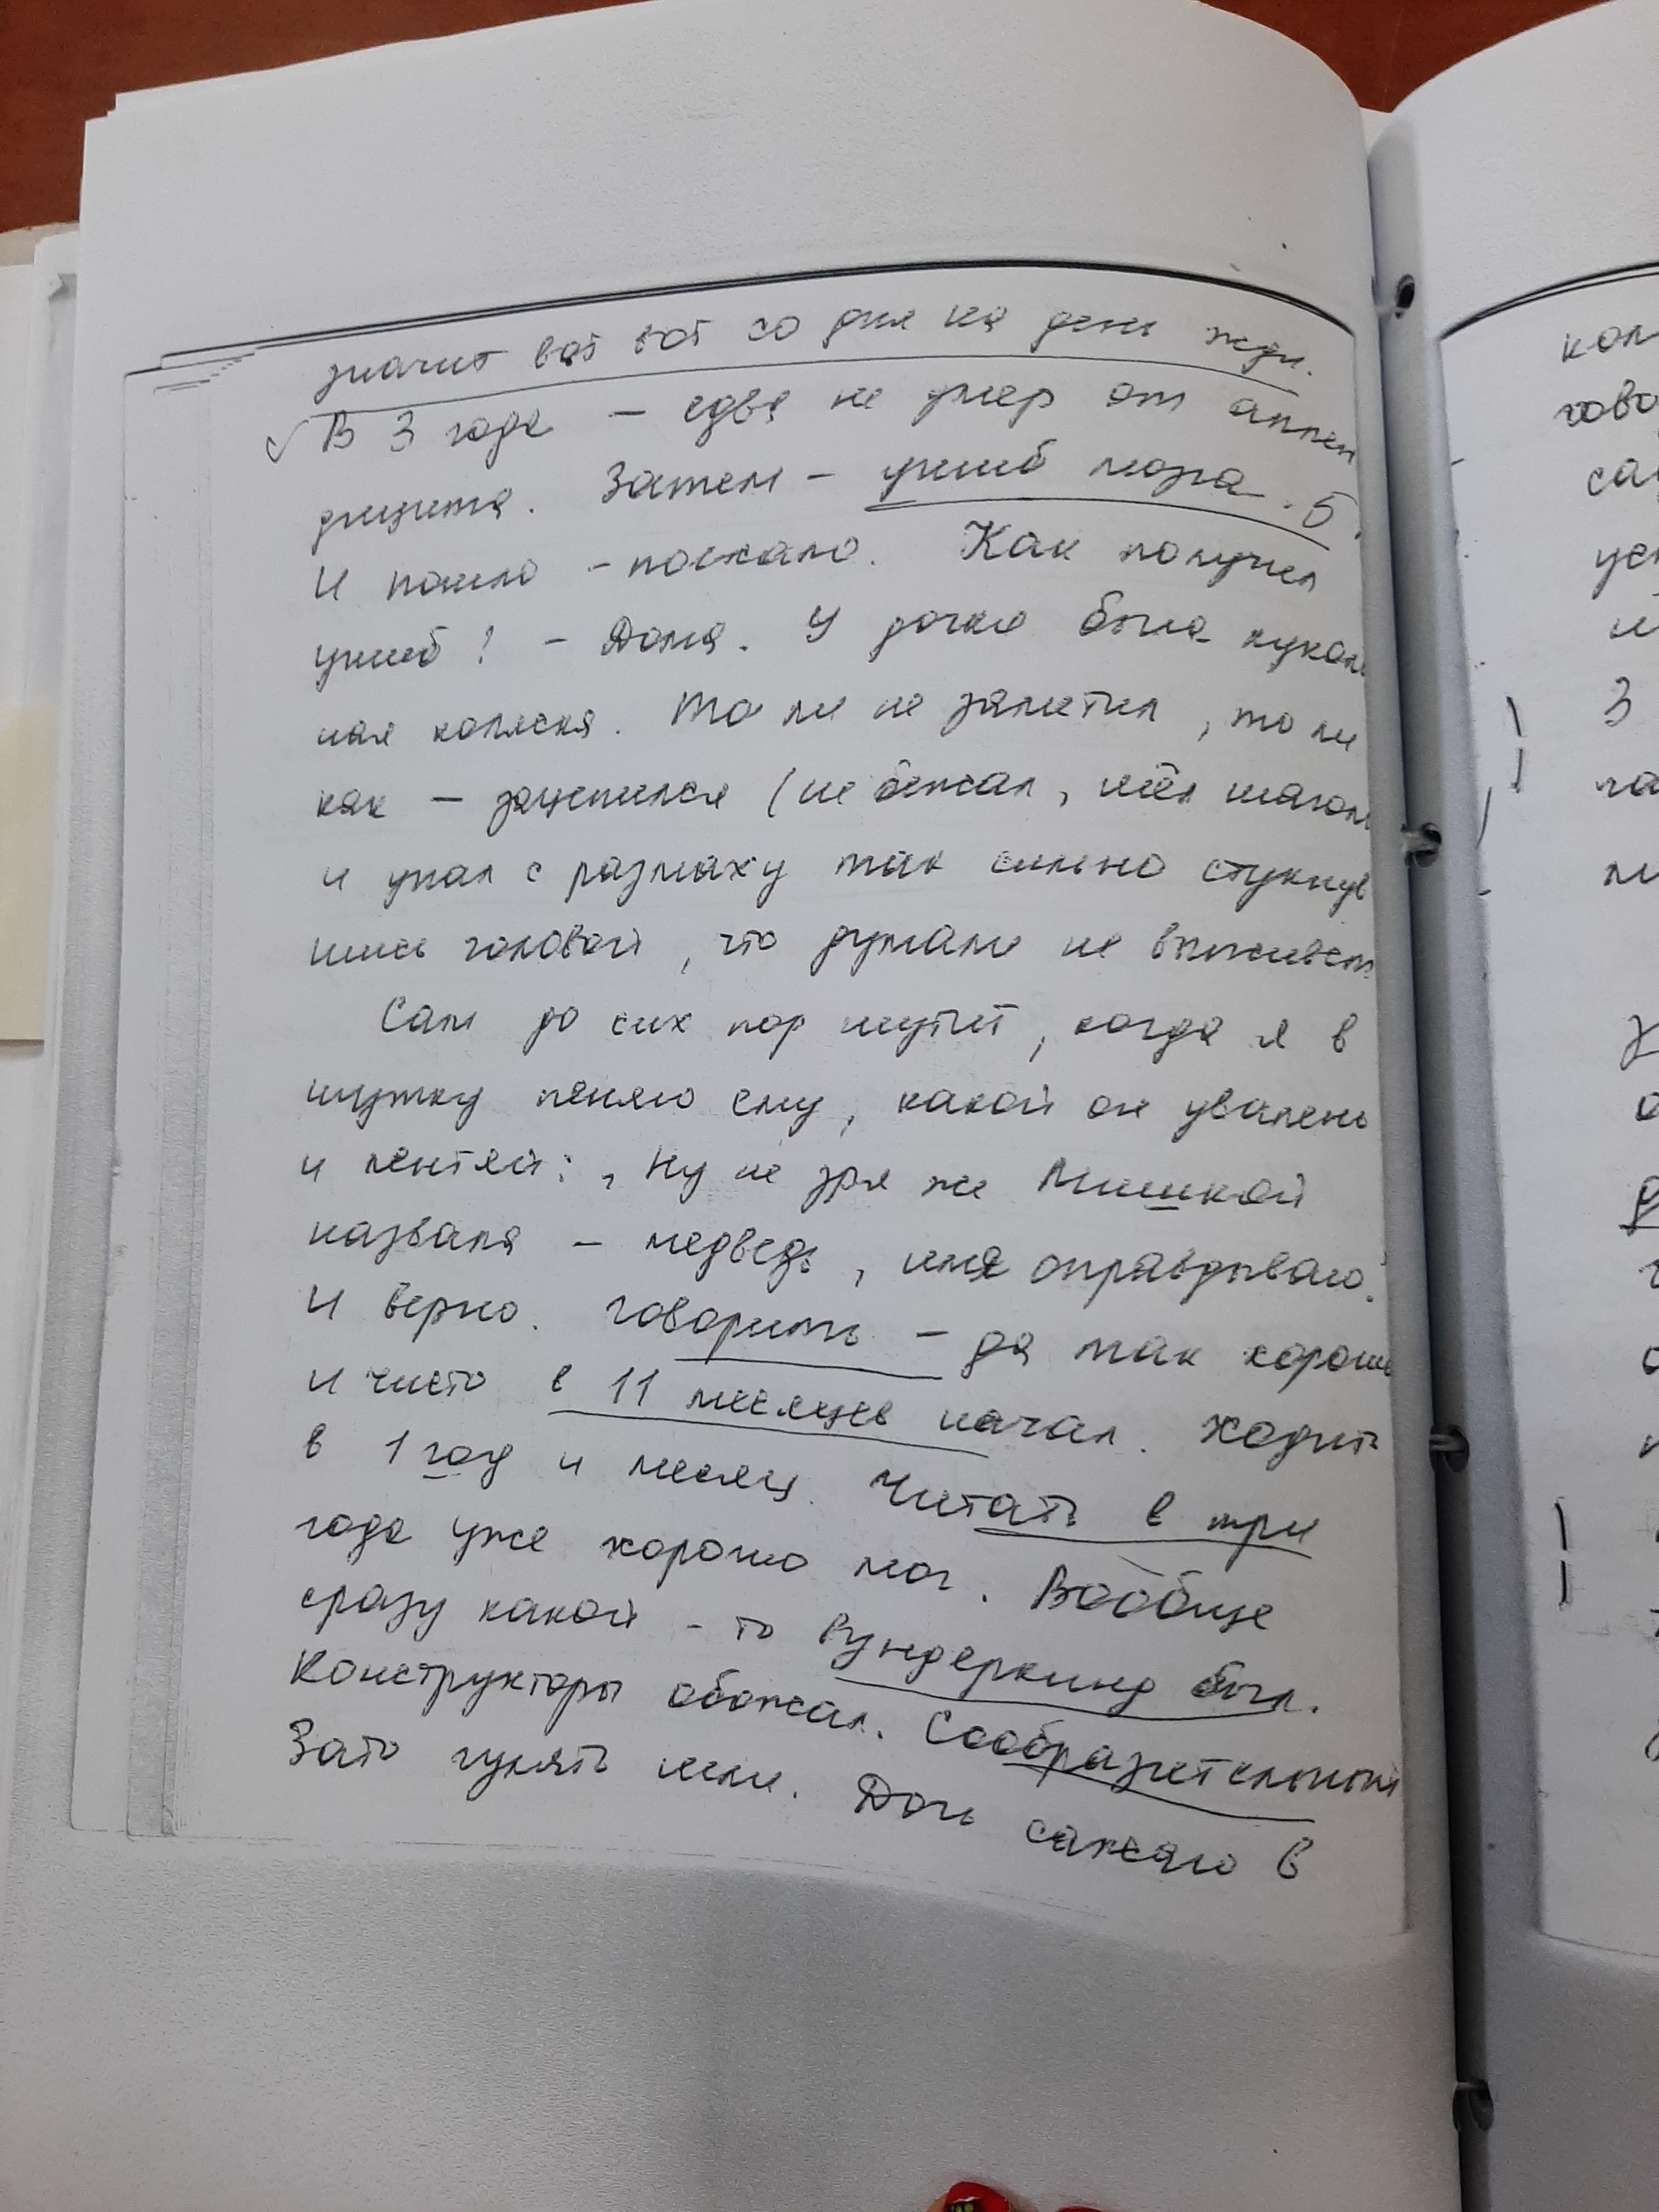 значит вот вот со дня на день жди.
В 3 года — едва не умер от аппен
дицита. Затем — ушиб мозга. 5.
И пошло - поехало. Как получил
ушиб? - Дома. У дочки была куколь
ная коляска. То ли не заметил, то ли
как — зацепился (не бежал, шёл шагом
и упал с размаху так сильно стукнув
шись головой, что думали не выживет
Сам до сих пор шутит, когда я в
шутку пеняю ему, какой он увалень
и лентяй: „Ну не зря же Мишкой
назвала — медведь, имя оправдываю."
И верно. Говорить — да так хорошо
и чисто в 11 месяцев начал. Ходить
в 1 год и месяц. Читать в три
года уже хорошо мог. Вообще
сразу какой-то вундеркинд был.
Конструкторы обожал. Сообразительный
Зато гулять шли. Дочь сажаю в
кол
гово
са
ус
и
3
ла
ли